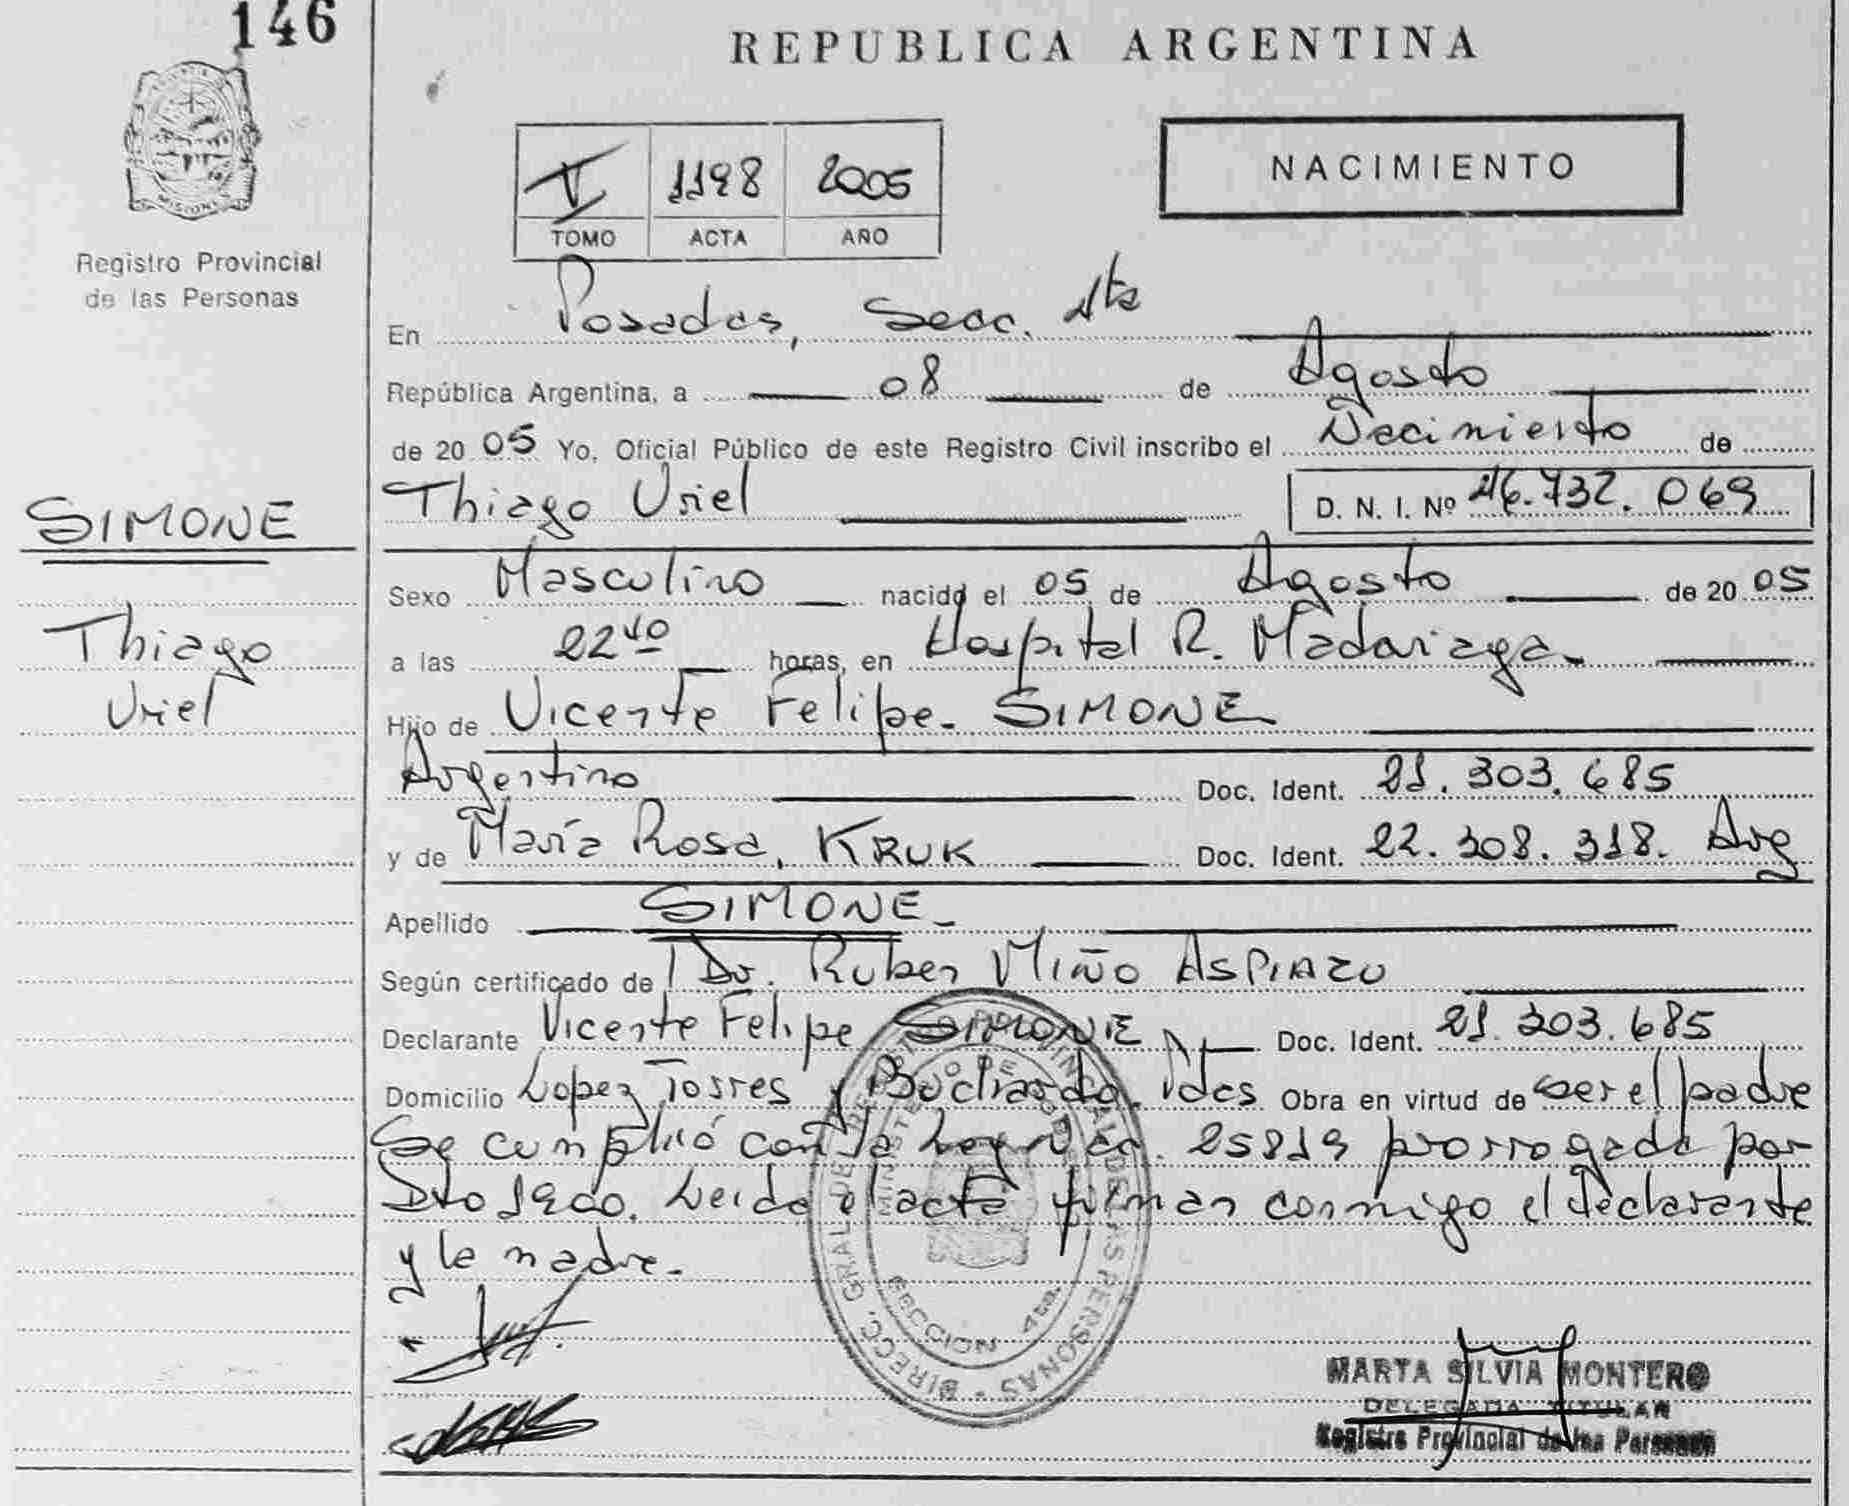 146
REPUBLICA ARGENTINA
MISIONES
Registro Provincial
de las Personas
V 1198 2005
TOMO ACTA AÑO
NACIMIENTO
En Posadas, Secc. 4ta
República Argentina, a 08 de Agosto
de 20 05 Yo, Oficial Público de este Registro Civil inscribo el Nacimiento de
Thiago Uriel D. N. I. Nº 46.732.069
SIMONE
Thiago
Uriel
Sexo Masculino nacido el 05 de Agosto de 20 05
a las 22 10 horas, en Hospital R. Madariaga.
Hijo de Vicente Felipe. SIMONE
Argentino Doc. Ident. 21.303.685
y de María Rosa, KRUK Doc. Ident. 22.308.318. Arg
Apellido SIMONE
Según certificado de Dr. Ruben Miño ASPIAZU
Declarante Vicente Felipe SIMONE Doc. Ident. 21.303.685
Domicilio Lopez Torres y Bouchardo, Pdas Obra en virtud de ser el padre
Se cumplió con la Ley 25819 prorrogada por
Dto Leida el acta firman conmigo el declarante
y la madre.
DIRECC. GRAL. DEL REGISTRO PROVINCIAL DE LAS PERSONAS
MINISTERIO DE
SECCION 4ta.
MARTA SILVIA MONTERO
DELEGADA TITULAR
Registro Provincial de las Personas